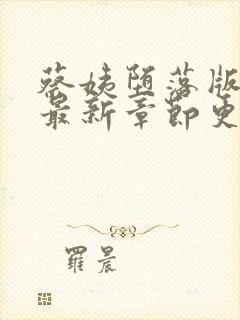 蔡姨堕落版
最新章节更
羅晨